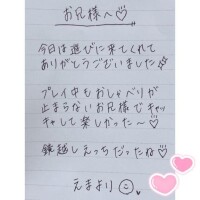 お兄様へ♡
今日は遊びに来てくれて
ありがとうございました
プレイ中もおしゃべりが
止まらないお兄様でキャッ
キャして楽しかった〜♡
鏡越しえっちだったね♡
えまより☺